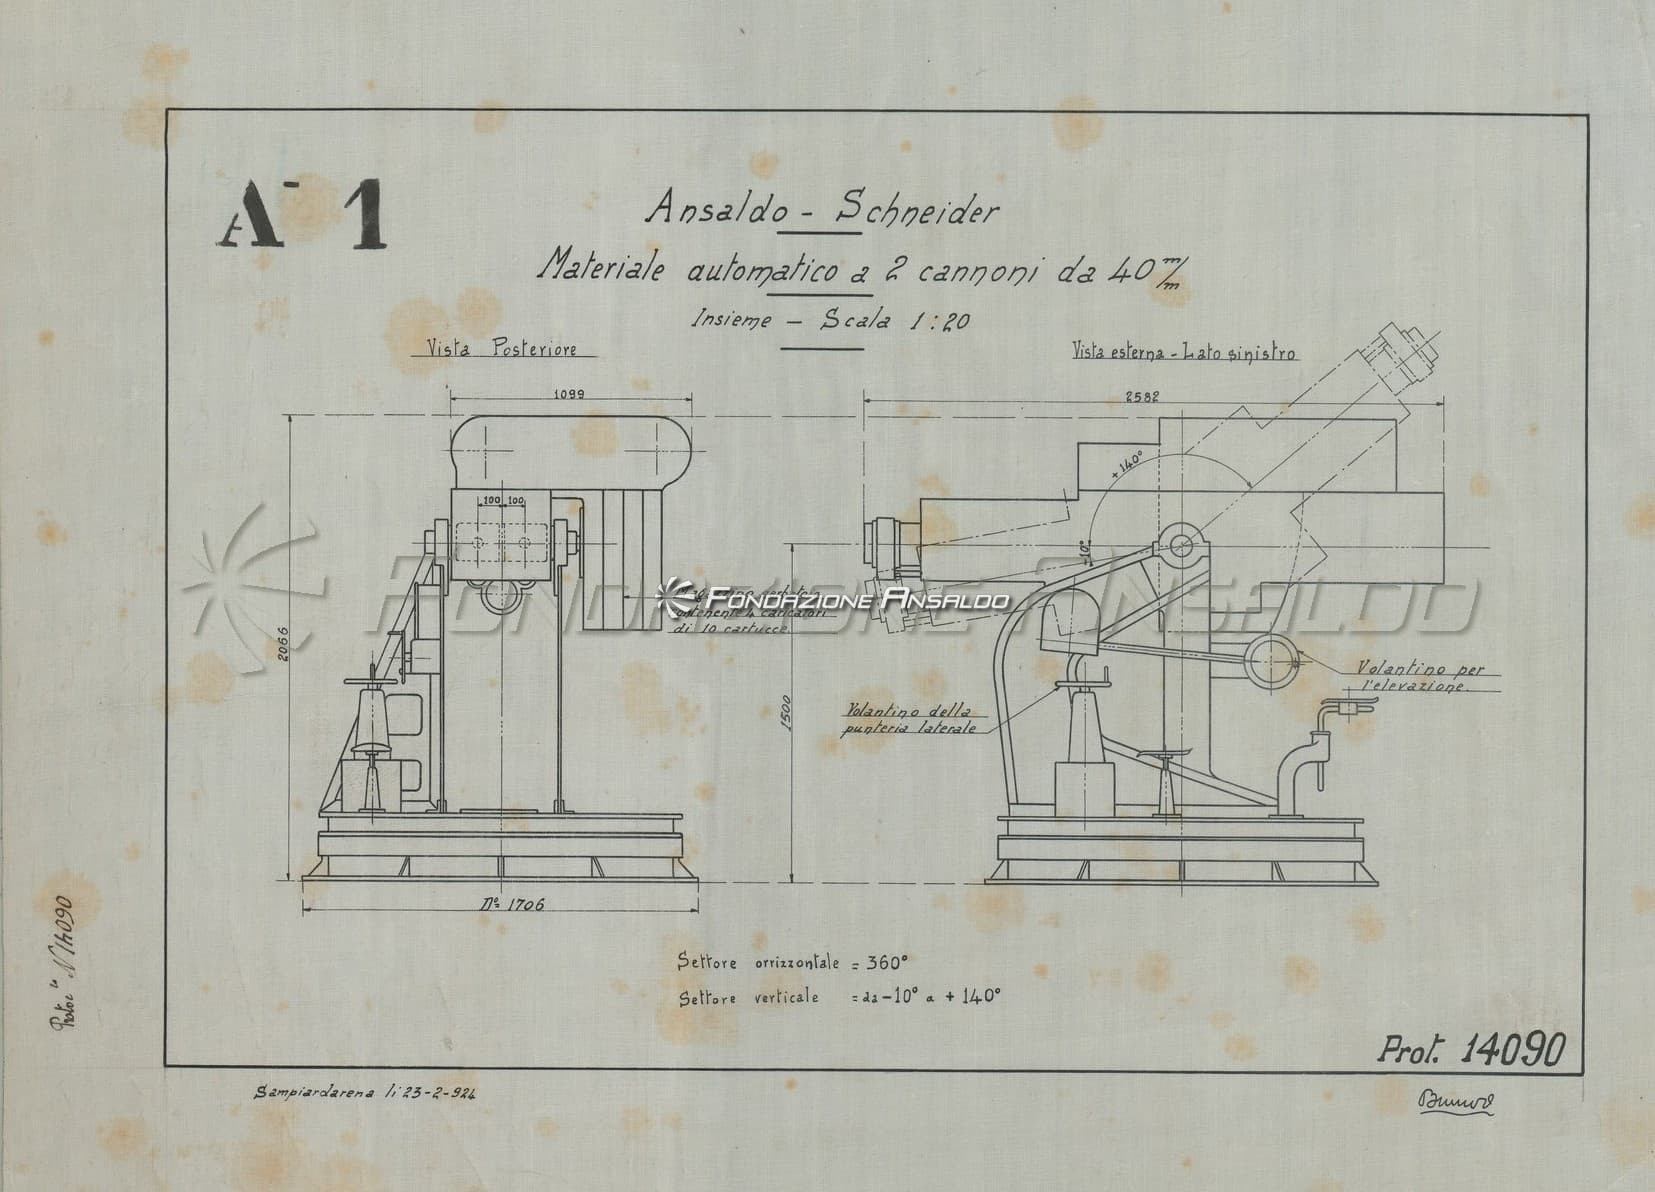 A-1
Ansaldo - Schneider
Materiale automatico a 2 cannoni da 40 m/m
Insieme - Scala 1:20
Vista Posteriore
Vista esterna - Lato sinistro
1099
2582
+140°
100 100
-10°
2066
FONDAZIONE ANSALDO
FONDAZIONE ANSALDO
contenente 4 caricatori
di 10 cartucce.
1500
Volantino per
l'elevazione.
Volantino della
punteria laterale
D.º= 1706
Settore orrizzontale = 360°
Settore verticale = da -10° a +140°
Prot. 14090
Sampierdarena li 23-2-924
N 14090